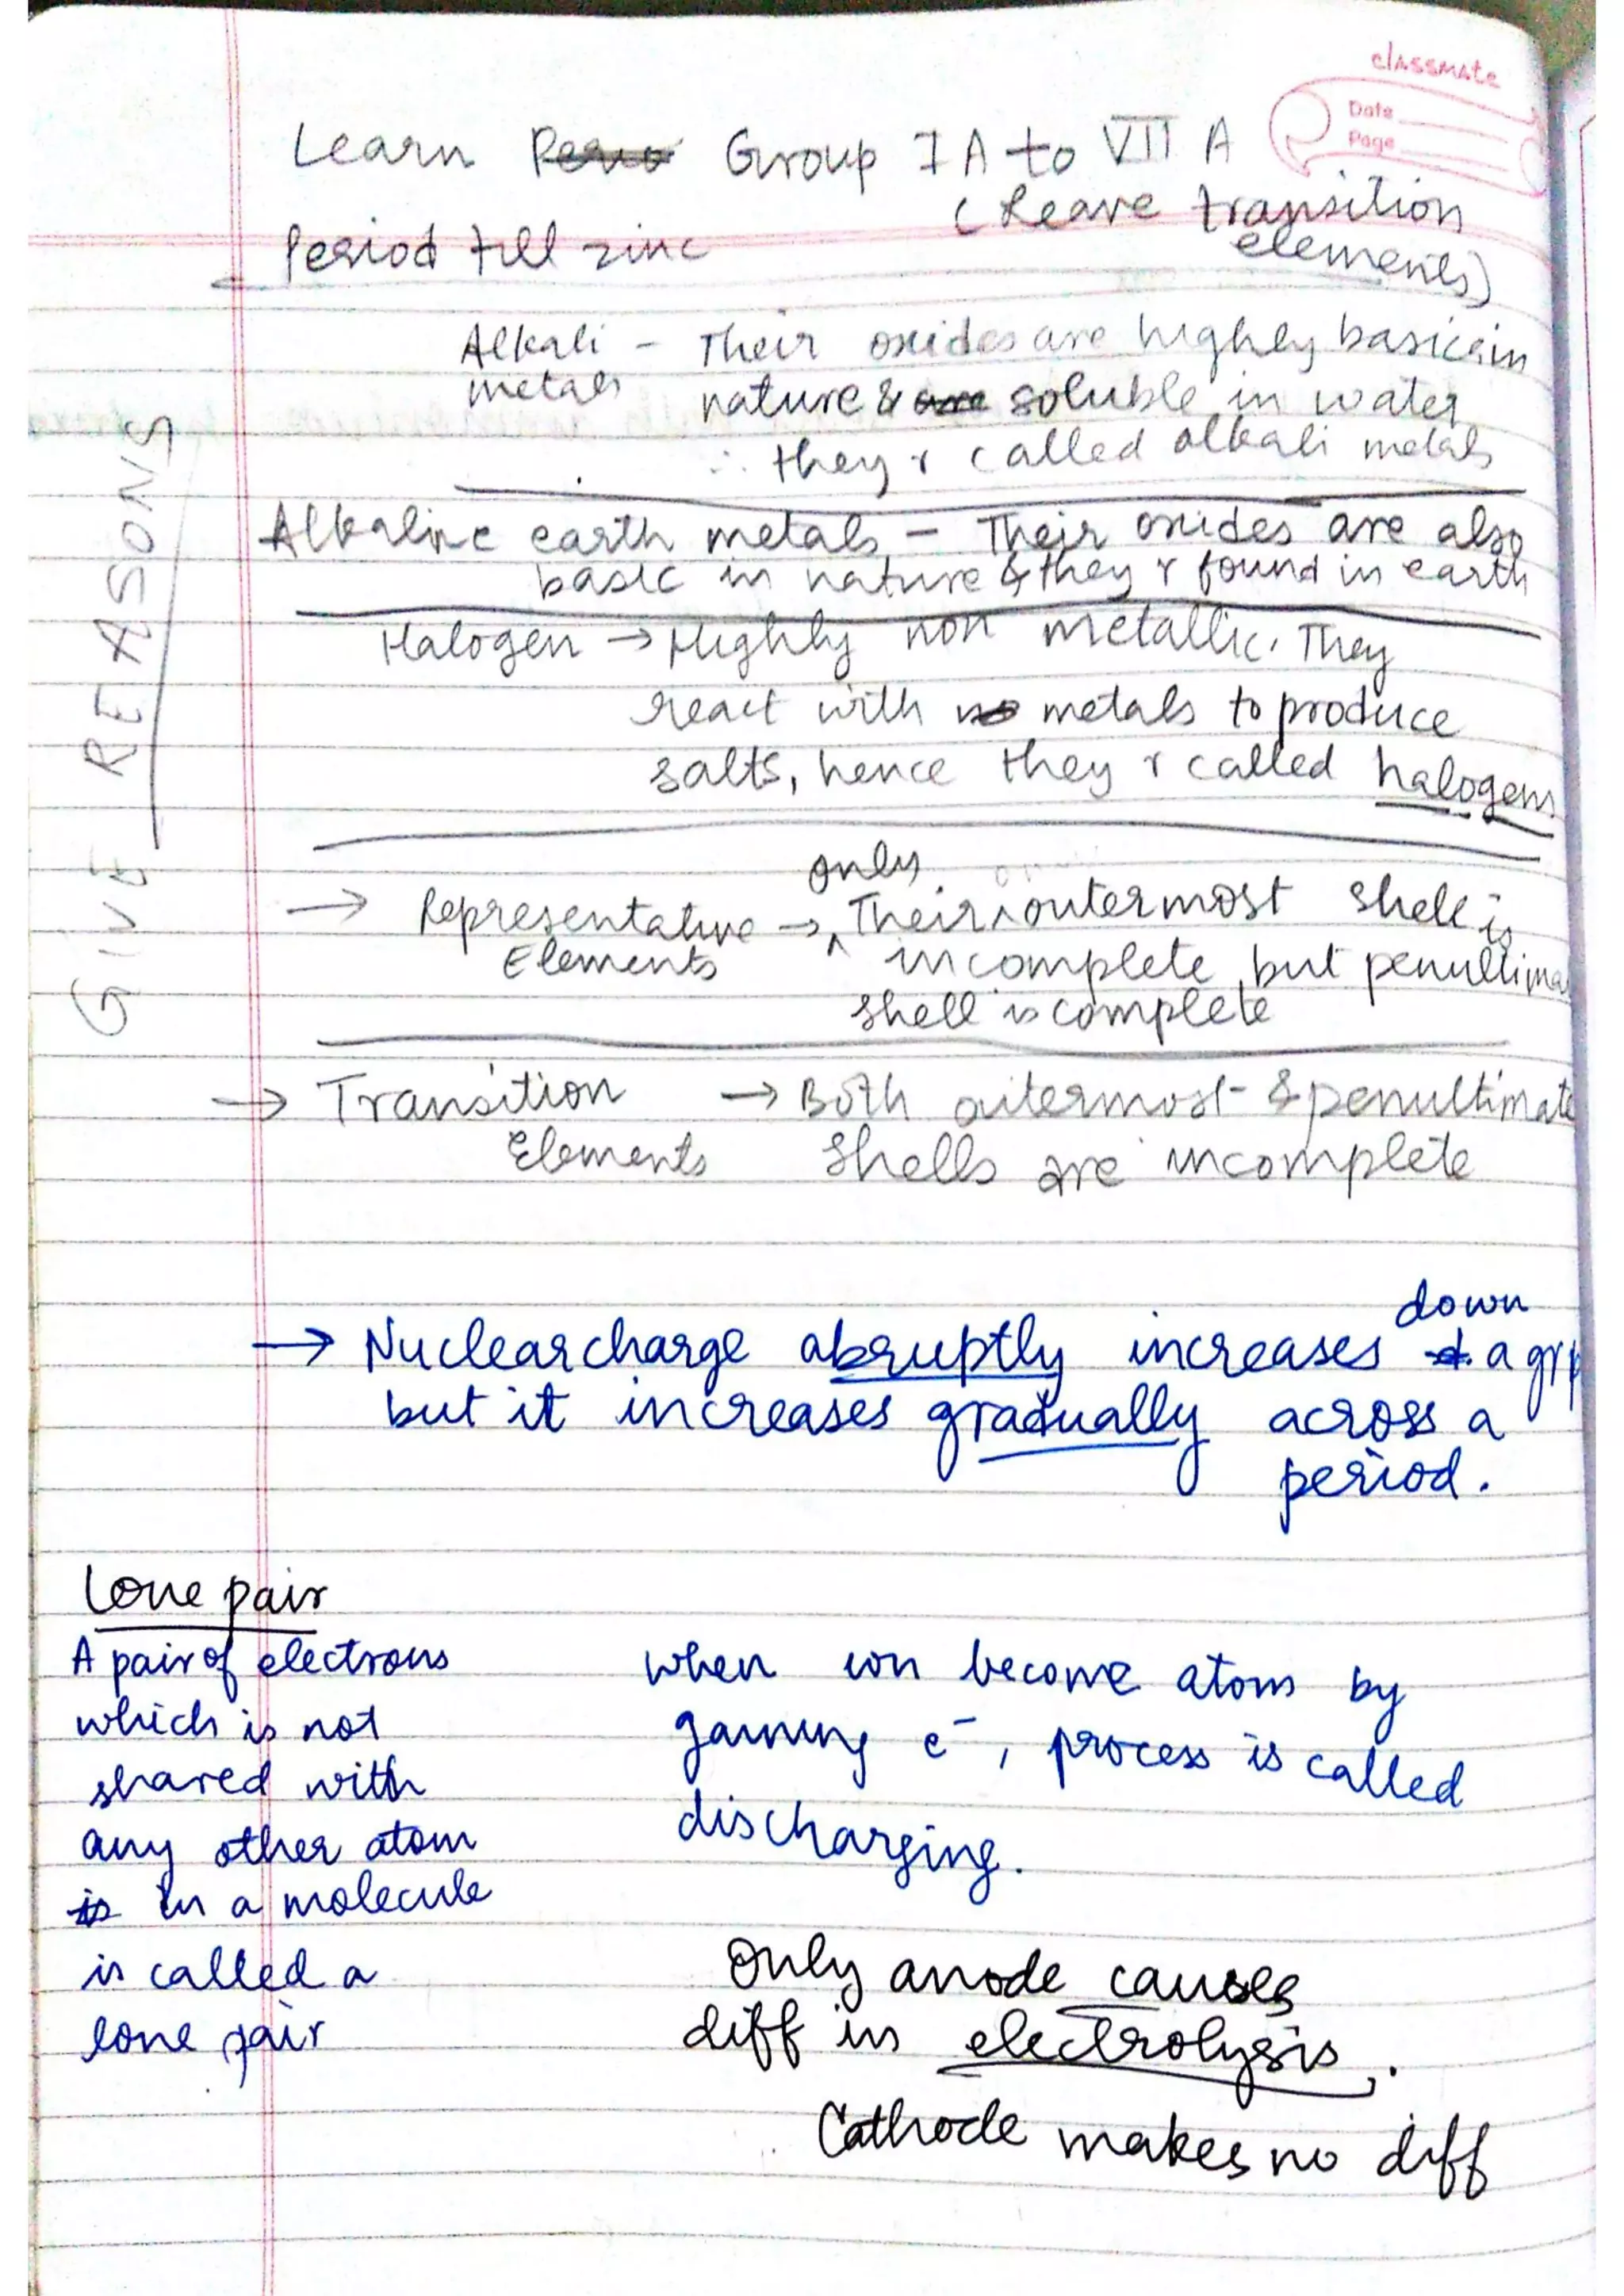 classmate
Date
Page
Learn Group IA to VII A
(Leave transition
elements)
Period till zinc
GIVE REASONS
Alkali - Their oxides are highly basic in
metals nature & soluble in water
∴ they r called alkali metals
Alkaline earth metals - Their oxides are also
basic in nature & they r found in earth
Halogen → Highly non metallic. They
react with metals to produce
salts, hence they r called halogens
only
→ Representative → Their ^ outermost shell is
Elements incomplete but penultima
shell is complete
→ Transition → Both outermost & penultimate
Elements Shells are incomplete
down
→ Nuclear charge abruptly increases a grp
but it increases gradually across a
period.
Lone pair
A pair of electrons
which is not
shared with
any other atom
in a molecule
is called a
lone pair
when ion become atom by
gaining e⁻, process is called
discharging.
Only anode causes
diff in electrolysis.
Cathode makes no diff